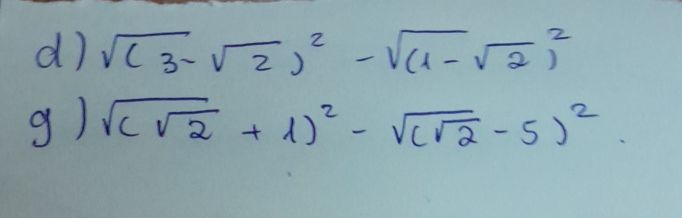 d) √(3-√2)² - √(1-√2)²
g) √(√2 + 1)² - √(√2 - 5)².